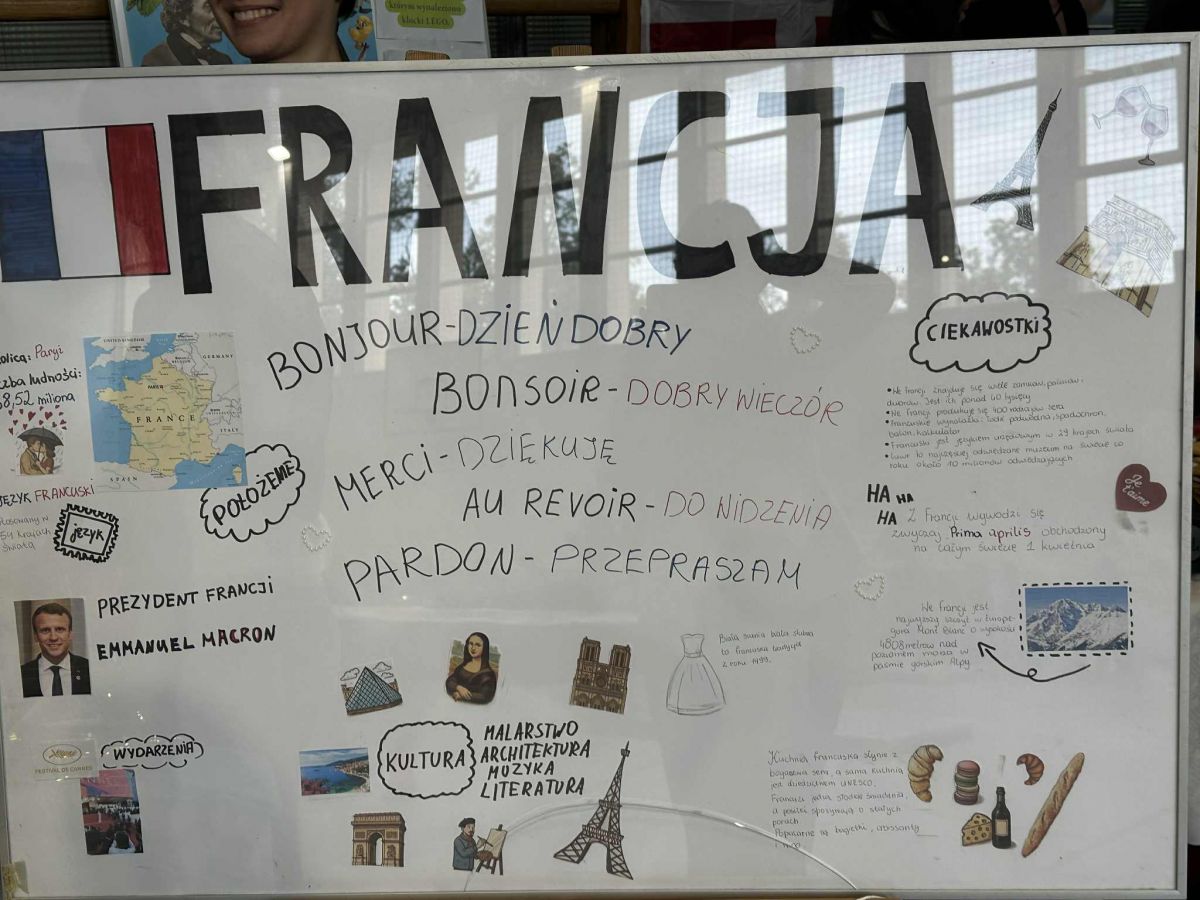 którym wynaleziono
klocki LEGO.
FRANCJA
olicą: Paryż
zba ludności:
8,52 miliona
UNITED KINGDOM
GERMANY
PARIS
FRANCE
ITALY
SPAIN
POŁOŻENIE
JĘZYK FRANCUSKI
54 krajach
świata
język
BONJOUR-DZIEŃ DOBRY
BONSOIR-DOBRY WIECZÓR
MERCI-DZIĘKUJĘ
AU REVOIR-DO WIDZENIA
PARDON-PRZEPRASZAM
CIEKAWOSTKI
•We francji znajduje się wiele zamków, pałaców,
dworów. Jest ich ponad 40 tysięcy
•We francji produkuje się 400 rodzajów sera
•Francuskie wynalazki: łódź podwodna, spadochron,
balon, kalkulator
•Francuski jest językiem urzędowym w 29 krajach świata
•Luwr to najczęściej odwiedzane muzeum na świecie co
roku około 10 milionów odwiedzających
HA HA
HA
Z Francji wywodzi się
zwyczaj Prima aprilis obchodzony
na całym świecie 1 kwietnia
Je
t'aime
We francji jest
najwyższy szczyt w Europie-
góra Mont Blanc o wysokości
4808 metrów nad
poziomem morza w
paśmie górskim Alpy
PREZYDENT FRANCJI
EMMANUEL MACRON
FESTIVAL DE CANNES
WYDARZENIA
Biała suknia ślubna
to francuska tradycja
z roku 1499.
KULTURA
MALARSTWO
ARCHITEKTURA
MUZYKA
LITERATURA
Kuchnia francuska słynie z
bogactwa sera, a sama kuchnia
jest dziedzictwem UNESCO.
Francuzi jedzą słodkie śniadania,
a posiłki spożywają o stałych
porach
Popularne są bagietki, croissanty
i wino